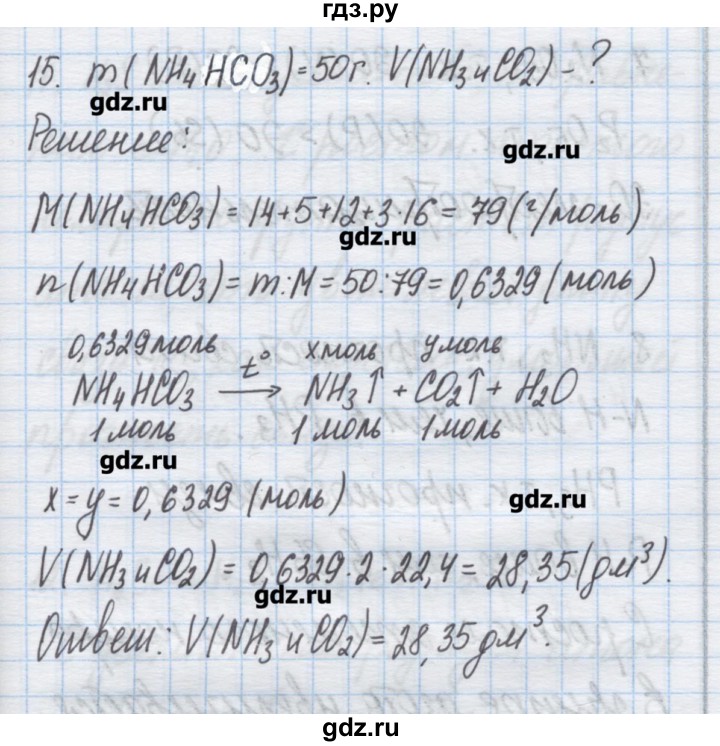 гдз.ру
15. m(NH₄HCO₃)=50г. V(NH₃ и CO₂) - ?
gdz.ru
Решение:
gdz.ru
M(NH₄HCO₃) = 14+5+12+3·16 = 79(г/моль)
gdz.ru
n(NH₄HCO₃) = m:M = 50:79 = 0,6329 (моль)
0,6329 моль x моль y моль
NH₄HCO₃ t° → NH₃↑ + CO₂↑ + H₂O
1 моль 1 моль 1 моль
gdz.ru
x = y = 0,6329 (моль)
gdz.ru
V(NH₃ и CO₂) = 0,6329·2·22,4 = 28,35(дм³).
gdz.ru
Ответ: V(NH₃ и CO₂) = 28,35 дм³.
gdz.ru